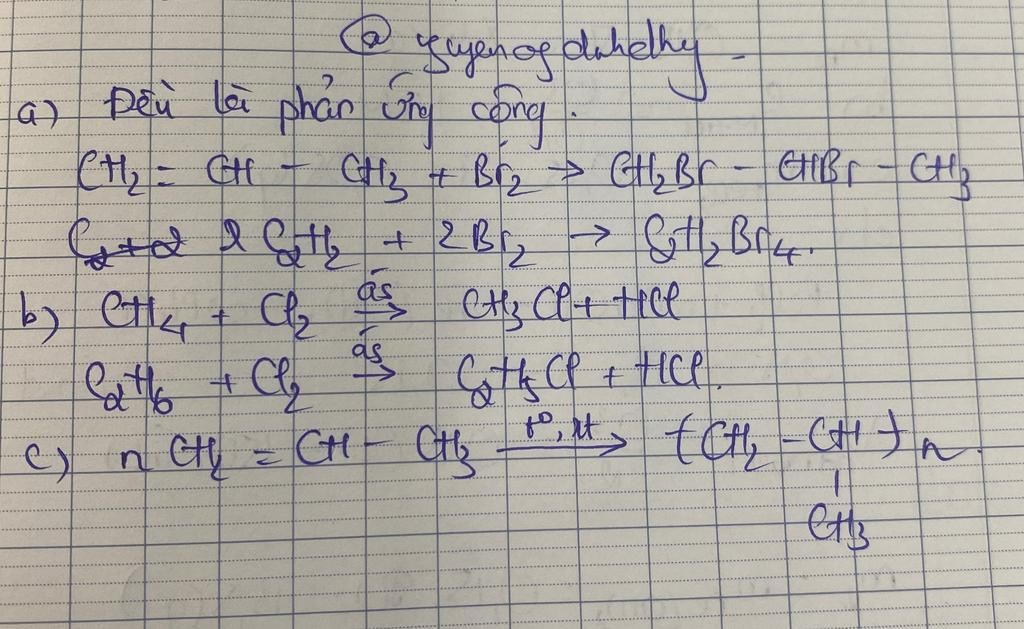 @ yuyenogduhdhy
a) Đều là phản ứng cộng.
CH₂ = CH - CH₃ + Br₂ → CH₂Br - CHBr - CH₃
2 C₂H₂ + 2Br₂ → C₂H₂Br₄.
b) CH₄ + Cl₂ →ás CH₃Cl + HCl
C₂H₆ + Cl₂ →ás C₂H₅Cl + HCl.
c) n CH₂ = CH - CH₃ →t°, xt (CH₂ - CH)n.
|
CH₃